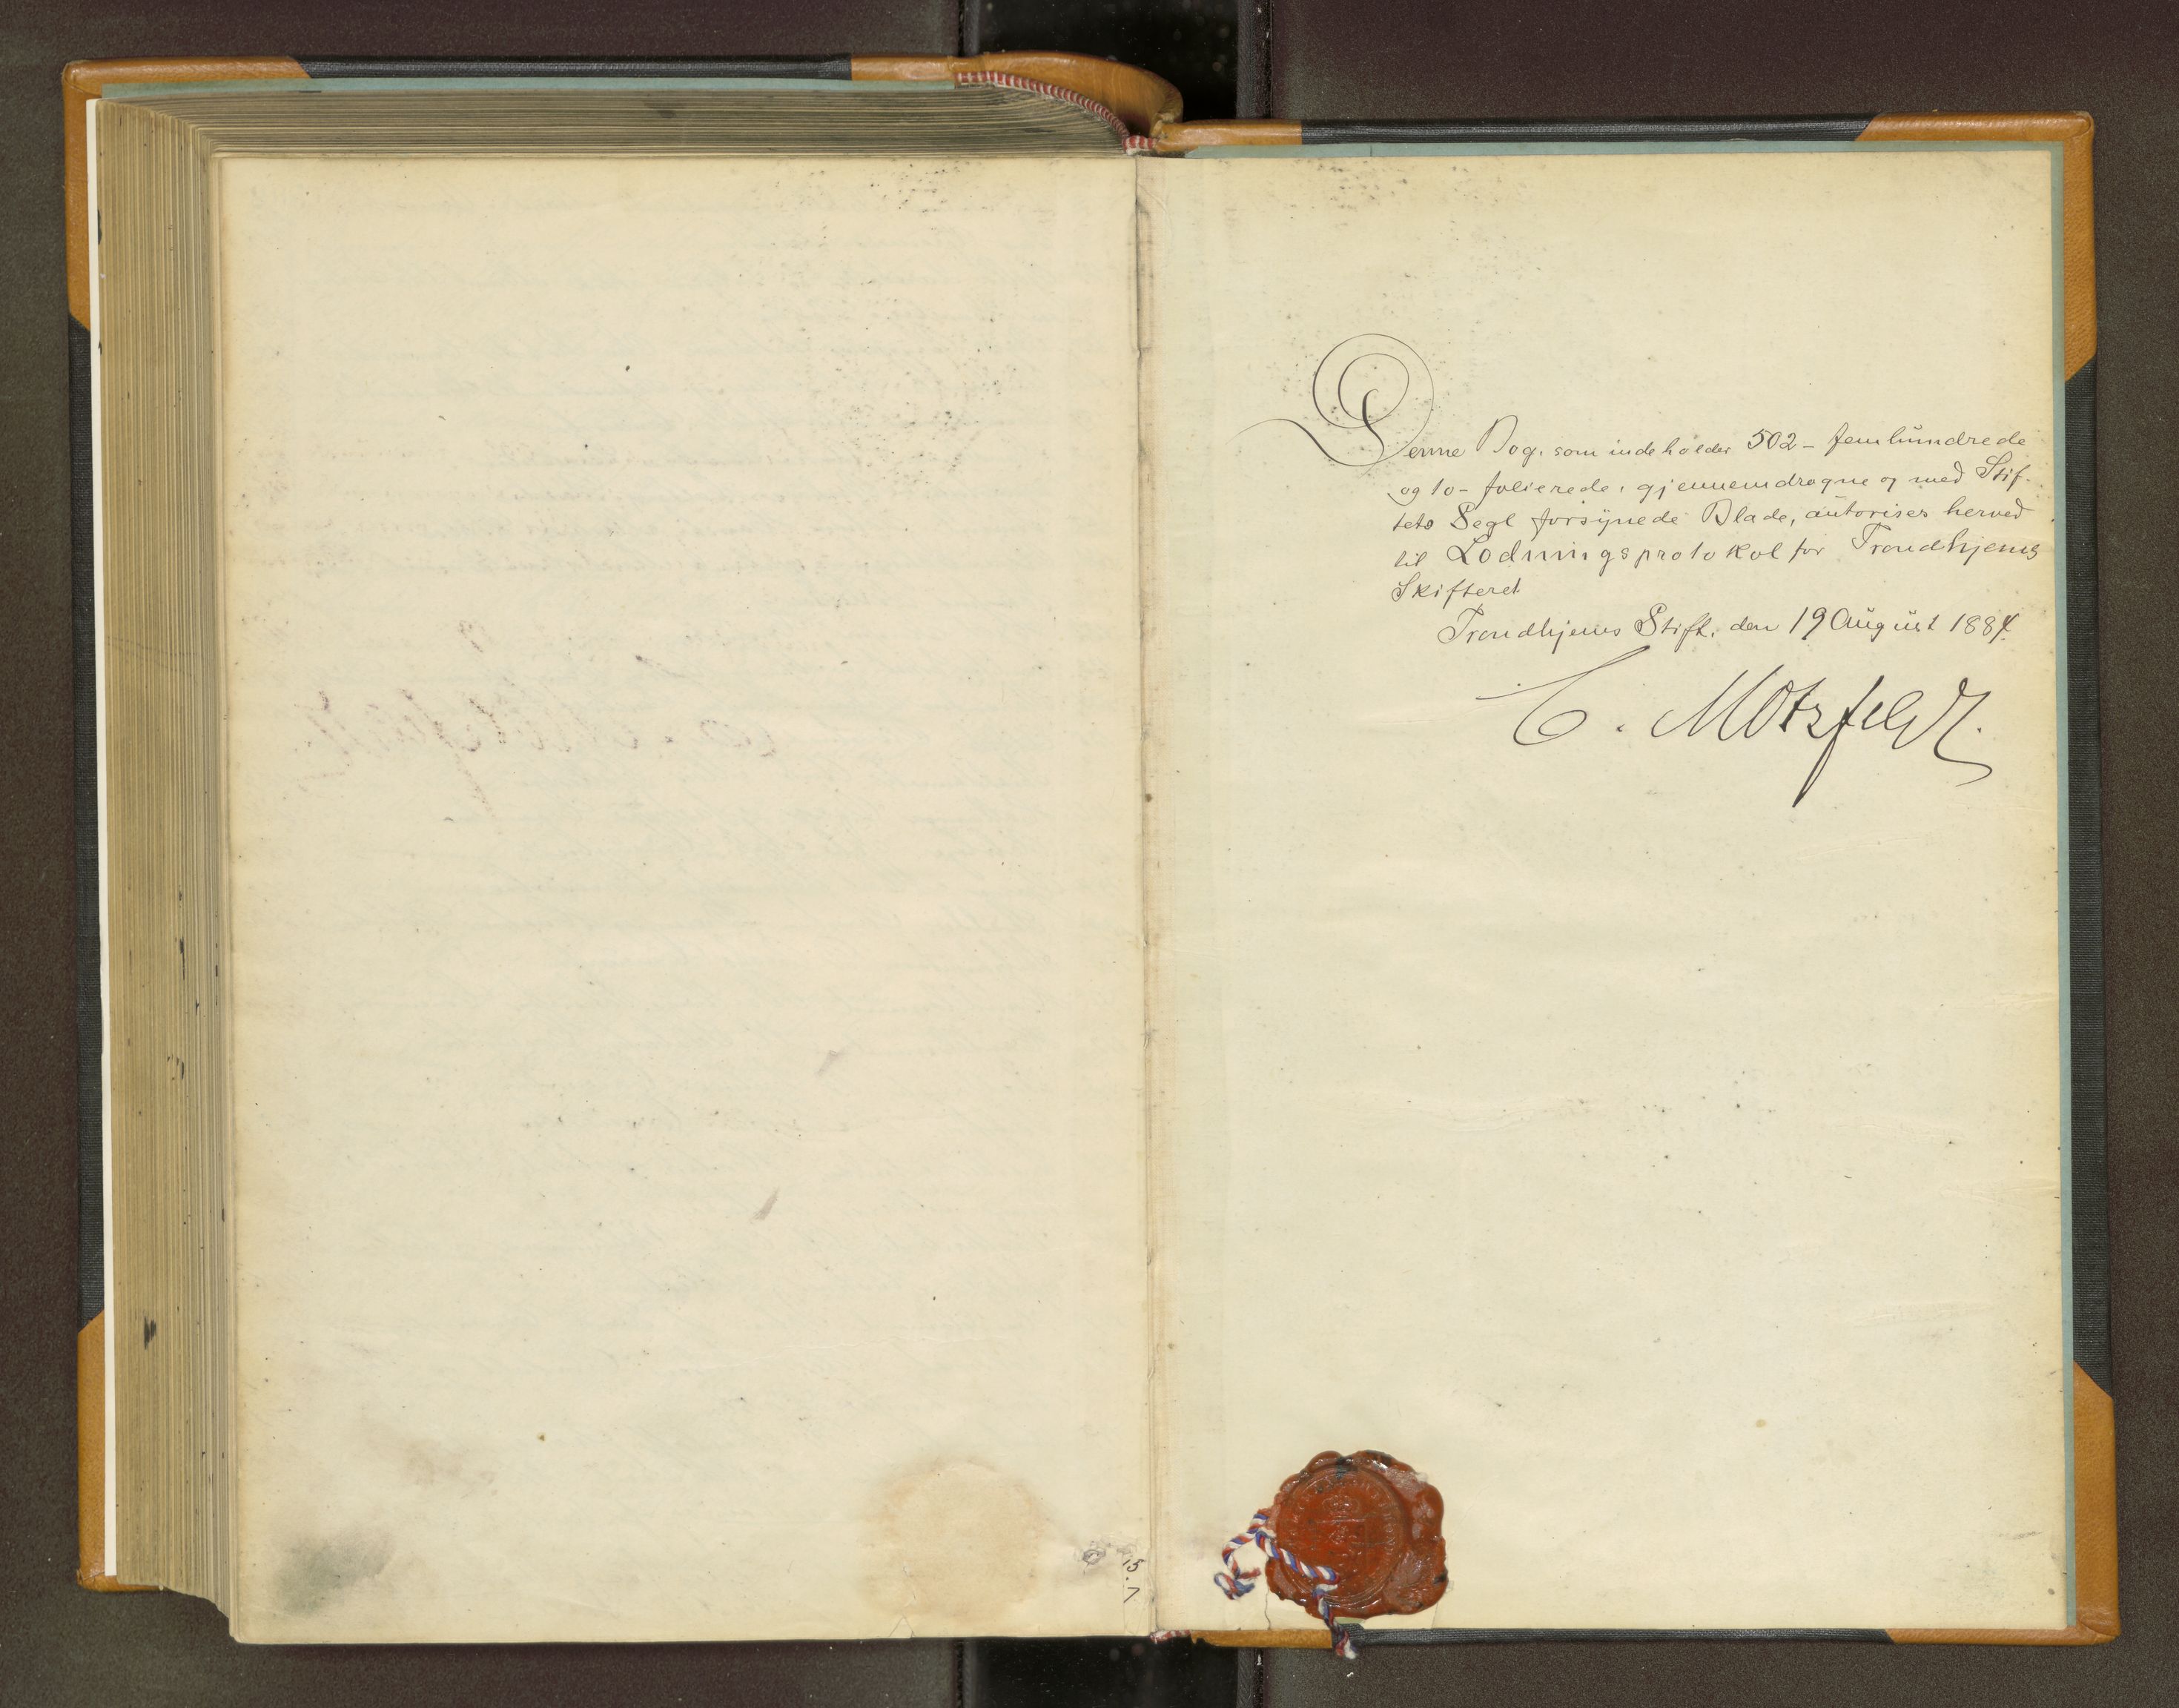 Denne Bog, som indeholder 502 - femhundrede
og to - folierede, gjennemdragne og med Stif-
tets Segl forsynede Blade, autorises herved
til Lodningsprotokol for Trondhjems
Skifteret
Trondhjems Stift, den 19 August 1884.
C. Motzfeldt.
15.7